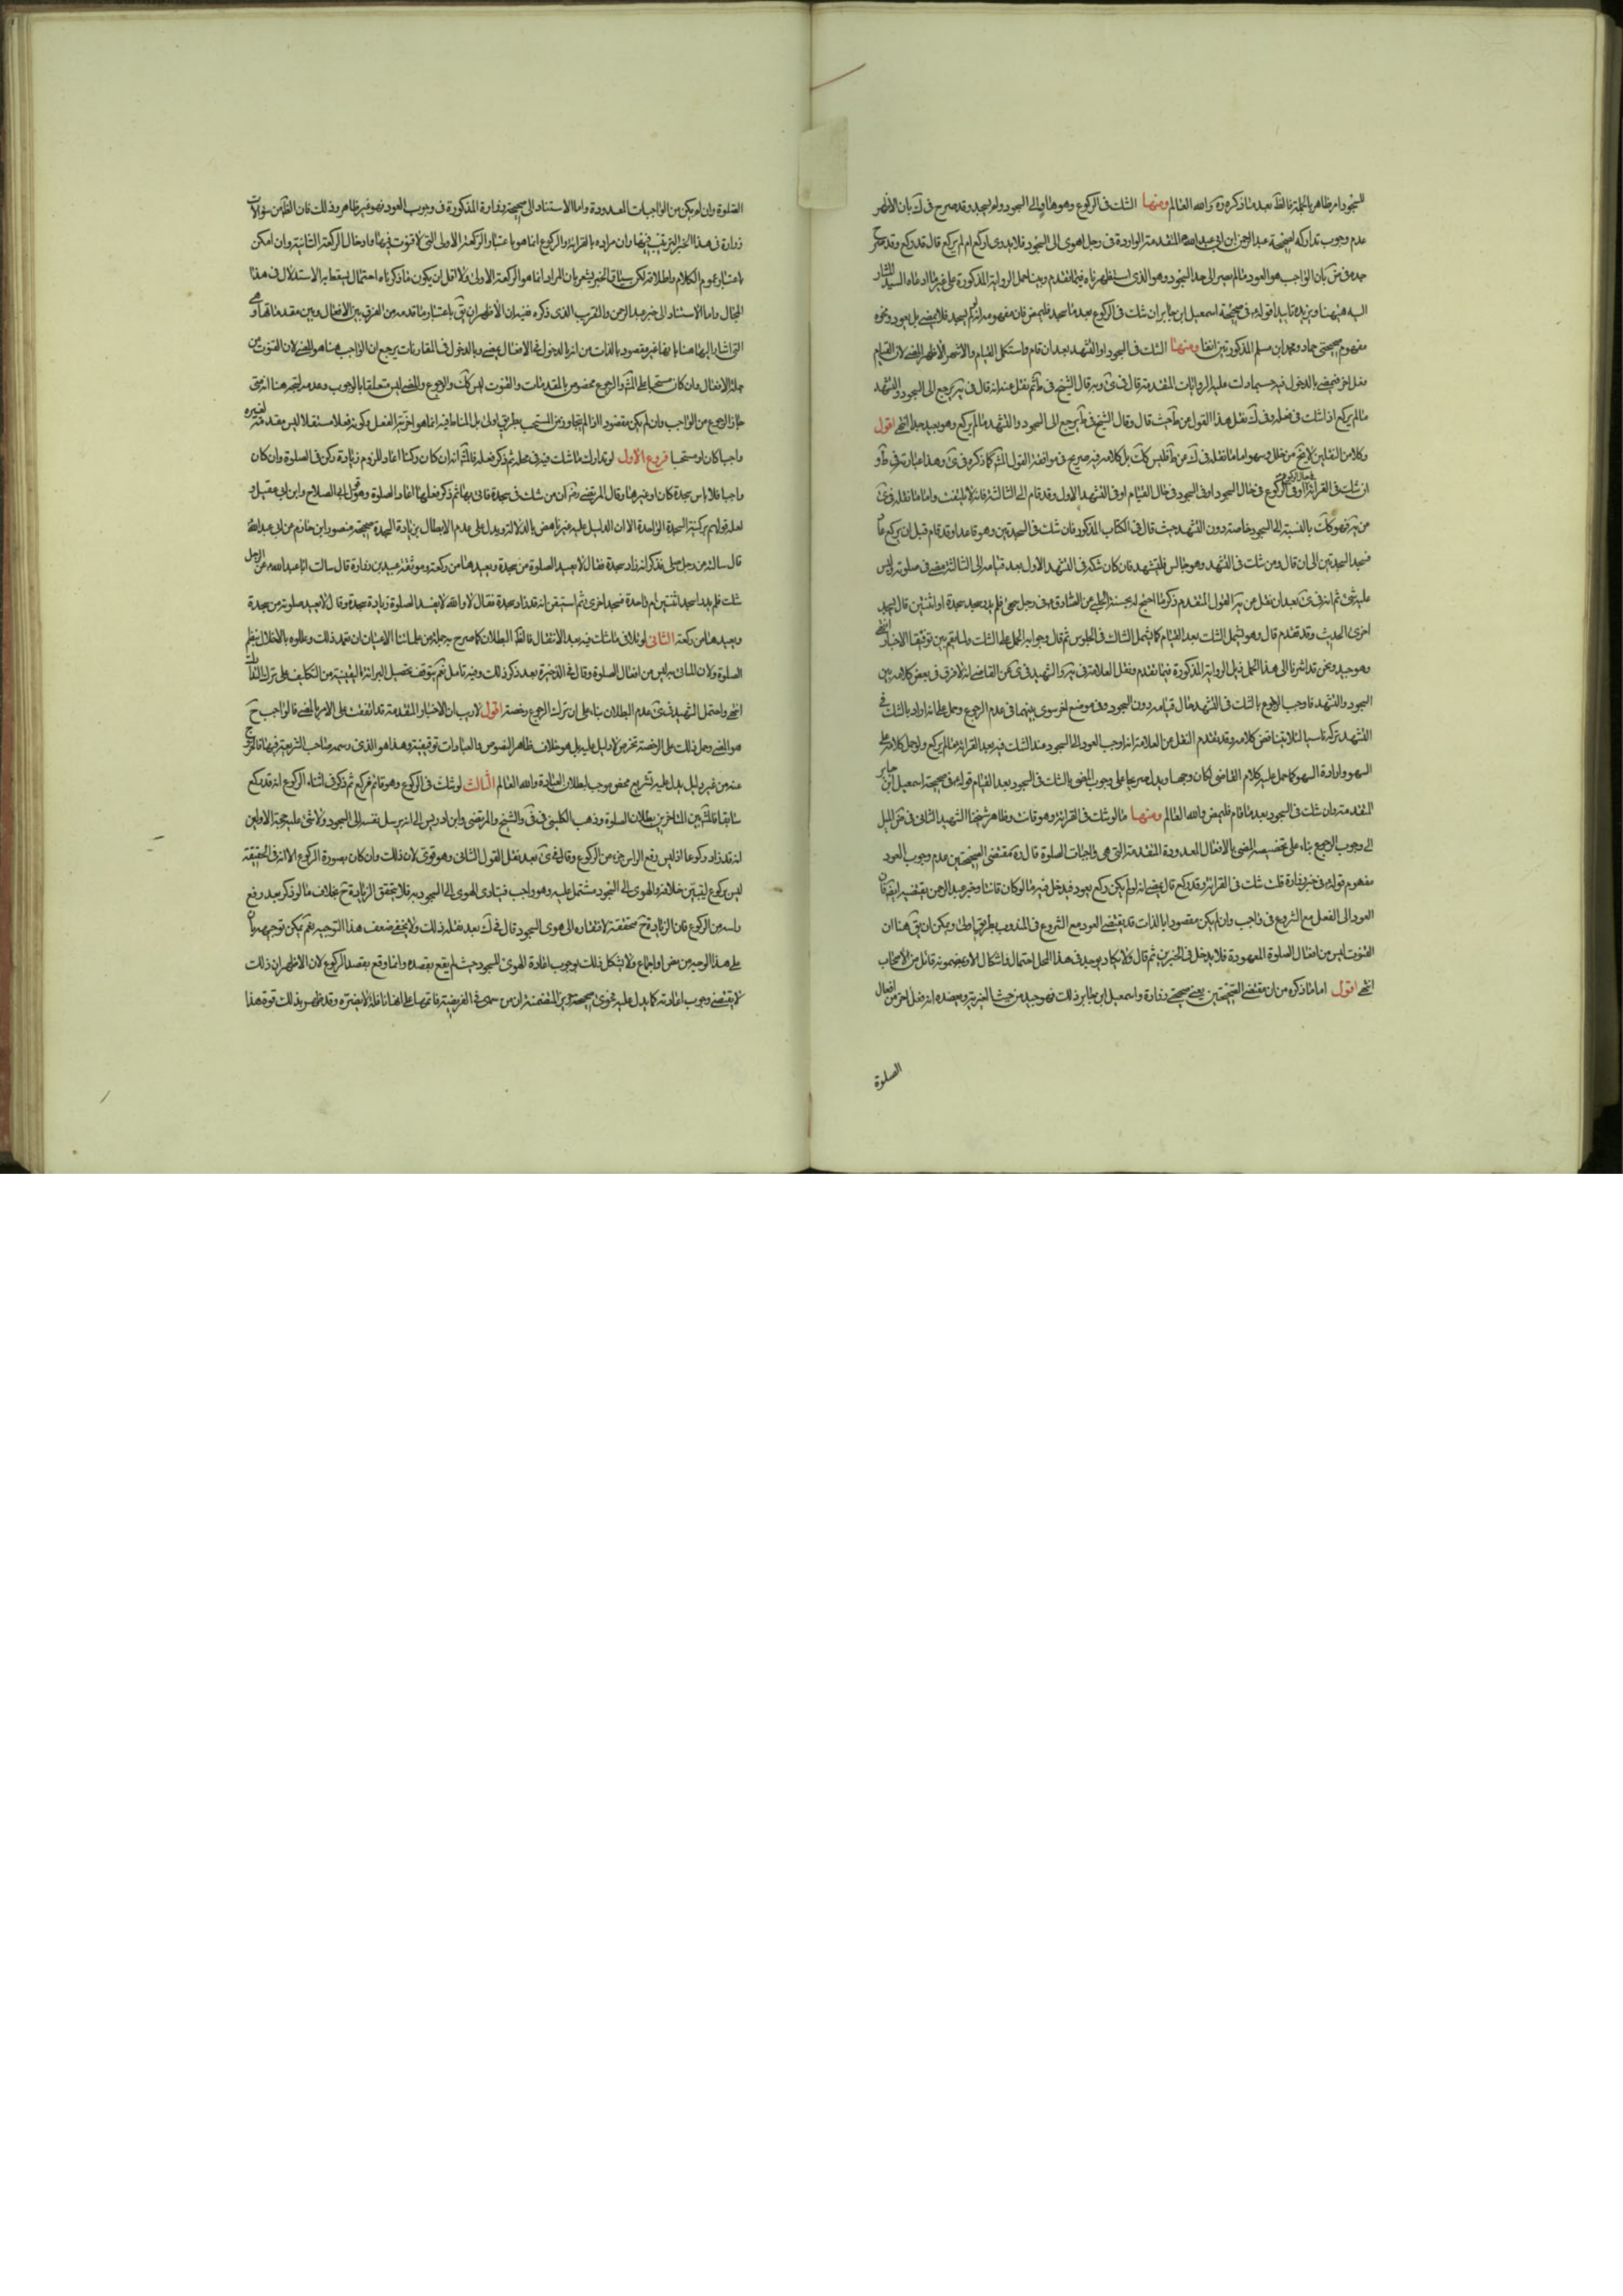 للسجود امر ظاهر بالجملة فالظ بعد ما ذكره ره والله العالم ومنها الشك في الركوع وهو هاو الى السجود ولم يسجد وقد صرح في ك بان الاظهر
عدم وجوب تداركه لصحيحة عبد الرحمن ابن ابي عبد الله المتقدمة الواردة في رجل اهوى الى السجود فلا يدرى اركع ام لم يركع قال قد ركع وقد
جده في بان الواجب هو العود ما لم يصر الى حد السجود وهو الذي استظهرناه فيما تقدم وبينا حمل الرواية المذكورة على غير ما ادعاه السيد المشار
اليه هيهنا ويزيده تاييدا قوله في صحيحة اسمعيل ابن جابر ان شك في الركوع بعد ما سجد فليمض فان مفهومه انه لم يسجد فلا يمضي بل يعود ونحوه
مفهوم صحيحتي حماد ومحمد ابن مسلم المذكورتين انفا ومنها الشك في السجود او التشهد بعد ان قام واستكمل القيام والاشهر الاظهر المضي لان القيام
فعل اخر فيمضي بالدخول فيه حسبما دلت عليه الروايات المتقدمة قال في وبه قال الشيخ في ط ثم نقل عنه انه قال في يه يرجع الى السجود والتشهد
ما لم يركع اذا شك في فعله وفي ك نقل هذا القول من ط حيث قال وقال الشيخ في ط يرجع الى السجود والتشهد ما لم يركع وهو بعيد جدا انتهى اقول
وكلا من النقلين لا يخ من خلل وسهو اما ما نقله في ك عن ط فليس كك بل كلامه فيه صريح في موافقة القول المش كما ذكره في وهذا عبارته في ط او
ان شك في القرائة او في الركوع في حال السجود او في السجود في حال القيام او في التشهد الاول وقد قام الى الثالثة فانه لا يلتفت واما ما نقله في
من يه فهو كك بالنسبة الى السجود خاصة دون التشهد حيث قال في الكتاب المذكور فان شك في السجدتين وهو قاعد او قد قام قبل ان يركع عاد
فسجد السجدتين الى ان قال ومن شك في التشهد وهو جالس فليتشهد فان كان شكه في التشهد الاول بعد قيامه الى الثالثة مضى في صلوته وليس
عليه شئ ثم انه في بعد ان نقل عن يه القول المتقدم ذكر ما احتج له بحسنة الحلبي عن الصادق في رجل سهى فلم يدر سجد سجدة او اثنتين قال يسجد
اخرى الحديث وقد تقدم قال وهو يشمل الشك بعد القيام كما يشمل الشاك في الجلوس ثم قال وجوابه الحمل على الشك ولما يقم بين توفيقا الاخبار انتهى
وهو جيد ونحن قد اشرنا الى هذا الحمل ذيل الرواية المذكورة فيما تقدم ونقل العلامة في يه والشهيد في عن القاضي انه لا فرق في بعض كلامه بين
السجود والتشهد فاوجب الرجوع بالشك في التشهد حال قيامه دون السجود وفي موضع اخر سوى بينهما في عدم الرجوع وحمل على انه اراد بالشك في
التشهد تركه ناسيا لئلا يتناقض كلامه وقد تقدم النقل عن العلامة انه اوجب العود الى السجود عند الشك فيه بعد القرائة ما لم يركع ولو حمل كلامه على
السهو وارادة السهو كما حمل عليه كلام القاضي لكان وجها ويدل صريحا على وجوب المضي بالشك في السجود بعد القيام قوله في صحيحة اسمعيل ابن جابر
المتقدمة وان شك في السجود بعد ما قام فليمض والله العالم ومنها ما لو شك في القرائة وهو قانت وظاهر شيخنا الشهيد الثاني في الميل
الى وجوب الرجوع بناء على تخصيصه المضي بالافعال المعدودة المتقدمة التي هي واجبات الصلوة قال ره مقتضى الصحيحتين عدم وجوب العود
مفهوم قوله في خبر زرارة قلت شك في القرائة وقد ركع قال يمضي انه لو لم يكن ركع يعود فيدخل فيه ما لو كان قانتا وخبر عبد الرحمن يقتضيه ايضا فان
العود الى الفعل مع الشروع في واجب وان لم يكن مقصودا بالذات قد يقتضي العود مع الشروع في المندوب بطريق اولى ويمكن ان يق هنا ان
القنوت ليس من افعال الصلوة المعهودة فلا يدخل في الخبرين ثم قال ولا يكاد يوجد في هذا المحل احتمال واشكال الا وبمضمونه قائل من الاصحاب
انتهى اقول اما ما ذكره من ان مقتضى الصحيحتين يعني صحيحتي زرارة واسمعيل ابن جابر ذلك فهو جيد من حيث الغيرية ويعضده انه فعل اخر من افعال
الصلوة
الصلوة وان لم يكن من الواجبات المعدودة واما الاستناد الى صحيحة زرارة المذكورة في وجوب العود فهو غير ظاهر وذلك فان الظ من سؤالات
زرارة في هذا الخبر الترتيب فيها وان مراده بالقرائة والركوع انما هو باعتبار الركعة الاولى التي لا قنوت فيها وادخال الركعة الثانية وان امكن
باعتبار عموم الكلام واطلاقه لكن سياق الخبر يشعر بان المراد انما هو الركعة الاولى ولا اقل ان يكون ما ذكرناه احتمال يسقط به الاستدلال في هذا
المجال واما الاستناد الى خبر عبد الرحمن والتقريب الذي ذكره ففيه ان الاظهر ان يق باعتبار ما قدمه من الفرق بين الافعال وبين مقدماتها
التي اشار اليها هنا بانها غير مقصودة بالذات من انه بالدخول في الافعال يمضي وبالدخول في المقارنات يرجع ان الواجب هنا هو المضي لان القنوت من
جملة الافعال وان كان مستحبا على المش والرجوع مخصوص بالمقدمات والقنوت ليس كك والرجوع والمضي ليس متعلقا بالوجوب وعدمه ليتجه هنا انه متى
جاز الرجوع من الواجب وان لم يكن مقصودا فالتجاوز من المستحب بطريق اولى بل المناط فيه انما هو اخرية الفعل وكونه فعلا مستقلا ليس مقدمة لغيره
واجبا كان او مستحبا فروع الاول لو تدارك ما شك فيه في محله ثم ذكر فعله فالمش انه ان كان ركنا اعاد للزوم زيادة ركن في الصلوة وان كان
واجبا فلا باس سجدة كان او غيرها وقال المرتضى رض ان من شك في سجدة فاتى بها ثم ذكر فعلها اعاد الصلوة وهو قول ابي الصلاح وابن ابي عقيل و
لعله قولهم بركنية السجدة الواحدة الا ان الدليل عليه غير ناهض بالدلالة ويدل على عدم الابطال بزيادة السجدة صحيحة منصور ابن حازم عن ابي عبد الله
قال سالته عن رجل صلى فذكر انه زاد سجدة فقال لا يعيد الصلوة من سجدة ويعيدها من ركعة وموثقة عبيد بن زرارة قال سالت ابا عبد الله عن الرجل
شك فلم يدر اسجد اثنتين ام واحدة فسجد اخرى ثم استيقن انه قد زاد سجدة فقال لا والله لا يفسد الصلوة زيادة سجدة وقال لا يعيد صلوته من سجدة
ويعيدها من ركعة الثاني لو تلافى ما شك فيه بعد الانتقال فالظ البطلان كما صرح به جملة من علمائنا الاعيان ان تعمد ذلك وعللوه بالاخلال بنظم
الصلوة ولان الماتي به ليس من افعال الصلوة وقال في الذخيرة بعد ذكر ذلك وفيه تامل نعم يتوقف تحصيل البرائة اليقينية من التكليف على ترك
انتهى واحتمل الشهيد في عدم البطلان بناء على ان ترك الرجوع رخصة اقول لا ريب ان الاخبار المتقدمة قد اتفقت على الامر بالمضي فالواجب ح
هو المضي وحمل ذلك على الرخصة تخرص لا دليل عليه بل هو خلاف ظاهر النصوص والعبادات توقيفية وهذا هو الذي رسمه صاحب الشريعة فيها فالخروج
عنه من غير دليل يدل عليه تشريع محض موجب لبطلان العبادة والله العالم الثالث لو شك في الركوع وهو قائم فركع ثم ذكر في اثناء الركوع انه قد ركع
سابقا فالمش بين المتاخرين بطلان الصلوة وذهب الكليني في والشيخ والمرتضى وابن ادريس الى انه يرسل نفسه الى السجود ولا شئ عليه حجة الاولين
انه قد زاد ركوعا اذ ليس رفع الراس جزء من الركوع وقال في بعد نقل القول الثاني وهو قوي لان ذلك وان كان بصورة الركوع الا انه في الحقيقة
ليس بركوع لتبين خلافه والهوى الى السجود مشتمل عليه وهو واجب فيتادى الهوى الى السجود به فلا يتحقق الزيادة ح بخلاف ما لو ذكر بعد رفع
راسه من الركوع فان الزيادة ح متحققة لافتقاره الى هوى السجود قال في ك بعد نقله ذلك ولا يخفى ضعف هذا التوجيه نعم يمكن توجيهه بان
على هذا الوجه من نص او اجماع ولا يشكل ذلك بوجوب اعادة الهوى للسجود حيث لم يقع بقصده وانما وقع بقصد الركوع لان الاظهر ان ذلك
لا يقتضي وجوب اعادته كما يدل عليه فحوى صحيحة المتضمنة ان من سهى في الفريضة فاتمها على انها نافلة لا يضره وقد ظهر بذلك قوة هذا